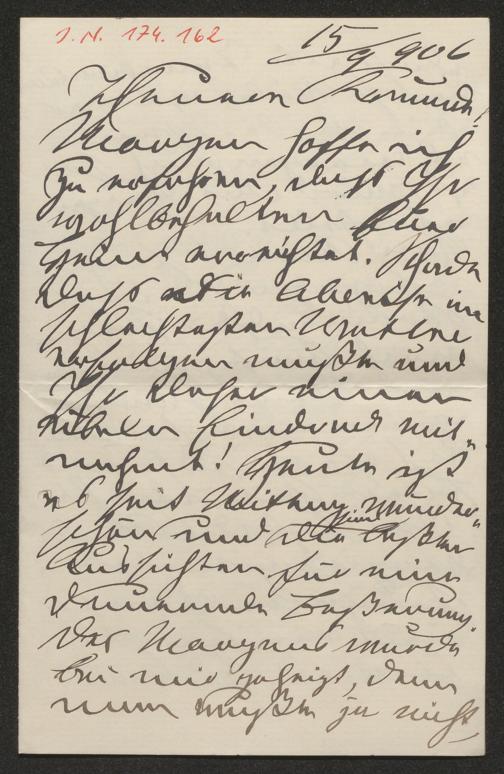 I. N. 174.162
15/9 906
Theuerer Freund!
Morgen hoffe ich
zu erfahren, dass Ihr
wohlbehalten Euer
Heim erreichtet. Schade
dass die Abreise im
schlechtesten Wetter
erfolgen musste und
Ihr daher einen
üblen Eindruck mit-
nehmt! Heute ist
es seit Mittag wunder-
schön und die besten
Aussichten für eine
dauernde Besserung.
Des Morgens wurde
bei mir geheizt, denn
man wusste ja nicht,